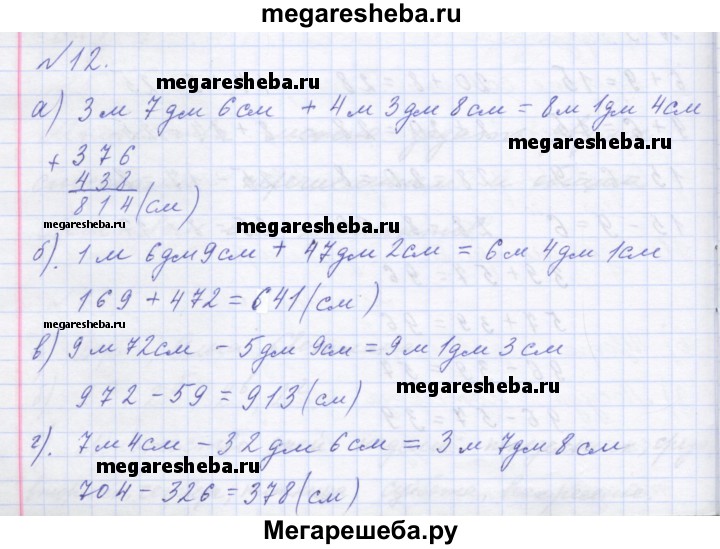 megaresheba.ru
№12.
megaresheba.ru
а) 3м 7дм 6см + 4м 3дм 8см = 8м 1дм 4см
megaresheba.ru
+ 376
438
814(см)
megaresheba.ru
megaresheba.ru
б). 1м 6дм 9см + 47дм 2см = 6м 4дм 1см
169 + 472 = 641(см)
megaresheba.ru
в) 9м 72см - 5дм 9см = 9м 1дм 3см
megaresheba.ru
972 - 59 = 913(см)
г). 7м 4см - 32дм 6см = 3м 7дм 8см
megaresheba.ru
704 - 326 = 378(см)
Мегарешеба.ру